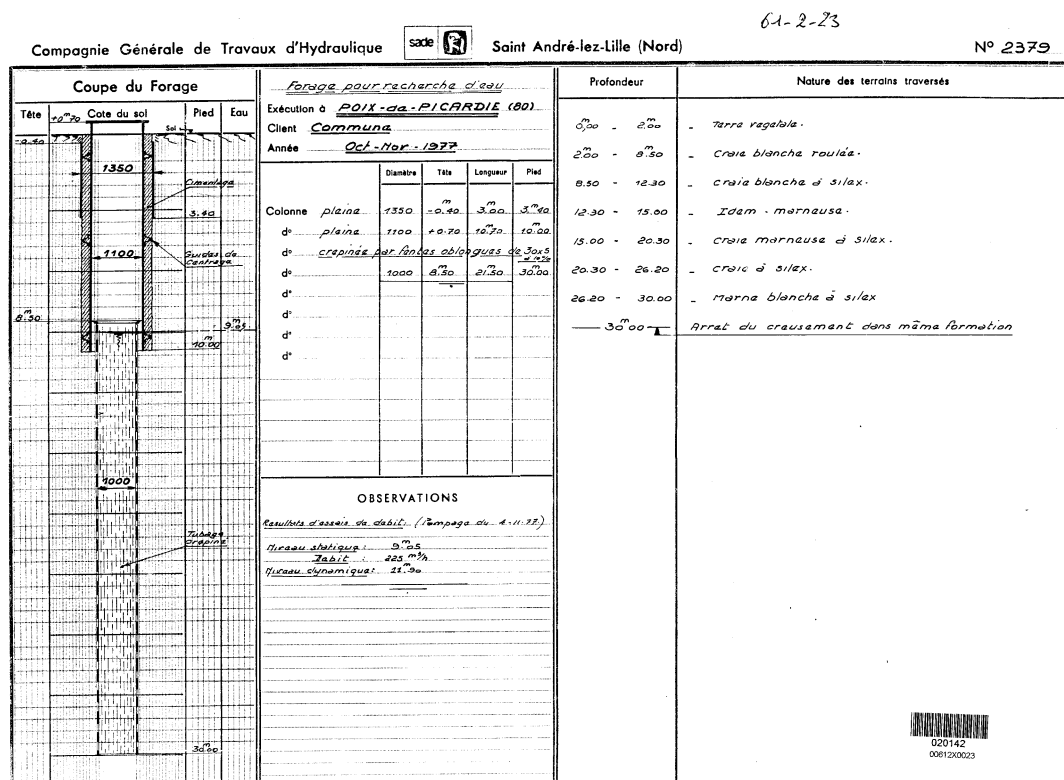 61-2-23
Compagnie Générale de Travaux d'Hydraulique sade Saint André-lez-Lille (Nord) N° 2379
Coupe du Forage
Tête Cote du sol Pied Eau
+0m70
Sol
-0.40
1350
Cimentage
3.40
1100
Guides de
Centrage
8m50
9m05
10m00
1000
Tubage
crépiné
30m00
Forage pour recherche d'eau
Exécution à POIX-de-PICARDIE (80)
Client Commune
Année Oct-Nov-1977
Diamètre Tête Longueur Pied
Colonne pleine 1350 -0m40 3m00 3m40
d° pleine 1100 +0.70 10m70 10m00
d° crépinée par fentes oblongues de 30x5
d° 1000 8m50 21m50 30m00
d°
d°
d°
d°
OBSERVATIONS
Résultats d'essais de débit: (Pompage du 4-11-77)
Niveau statique: 9m05
Débit: 225 m3/h
Niveau dynamique: 11m90
Profondeur Nature des terrains traversés
0m00 - 2m00 - Terre végétale.
2m00 - 8m50 - Craie blanche roulée.
8.50 - 12.30 - Craie blanche à silex.
12.30 - 15.00 - Idem - marneuse.
15.00 - 20.30 - Craie marneuse à silex.
20.30 - 26.20 - Craie à silex.
26.20 - 30.00 - Marne blanche à silex
30m00 Arret du creusement dans même formation
020142
00612X0023